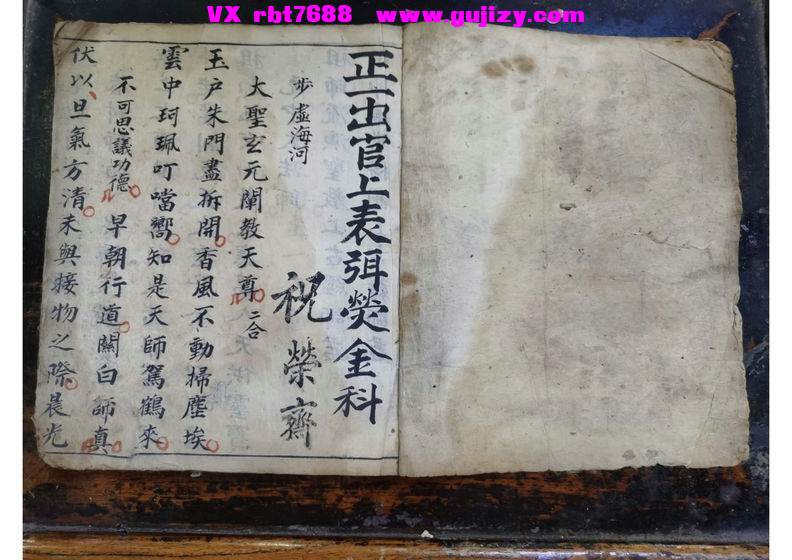 VX rbt7688 www.gujizy.com
正一出官上表弭熒金科
步虛海河
祝榮齋
大聖玄元闡教天尊 二合
玉戶朱門盡拆開香風不動掃塵埃
雲中珂珮叮噹嚮知是天師駕鶴來
不可思議功德 早朝行道關白師真
伏以旦氣方清未與接物之際晨光